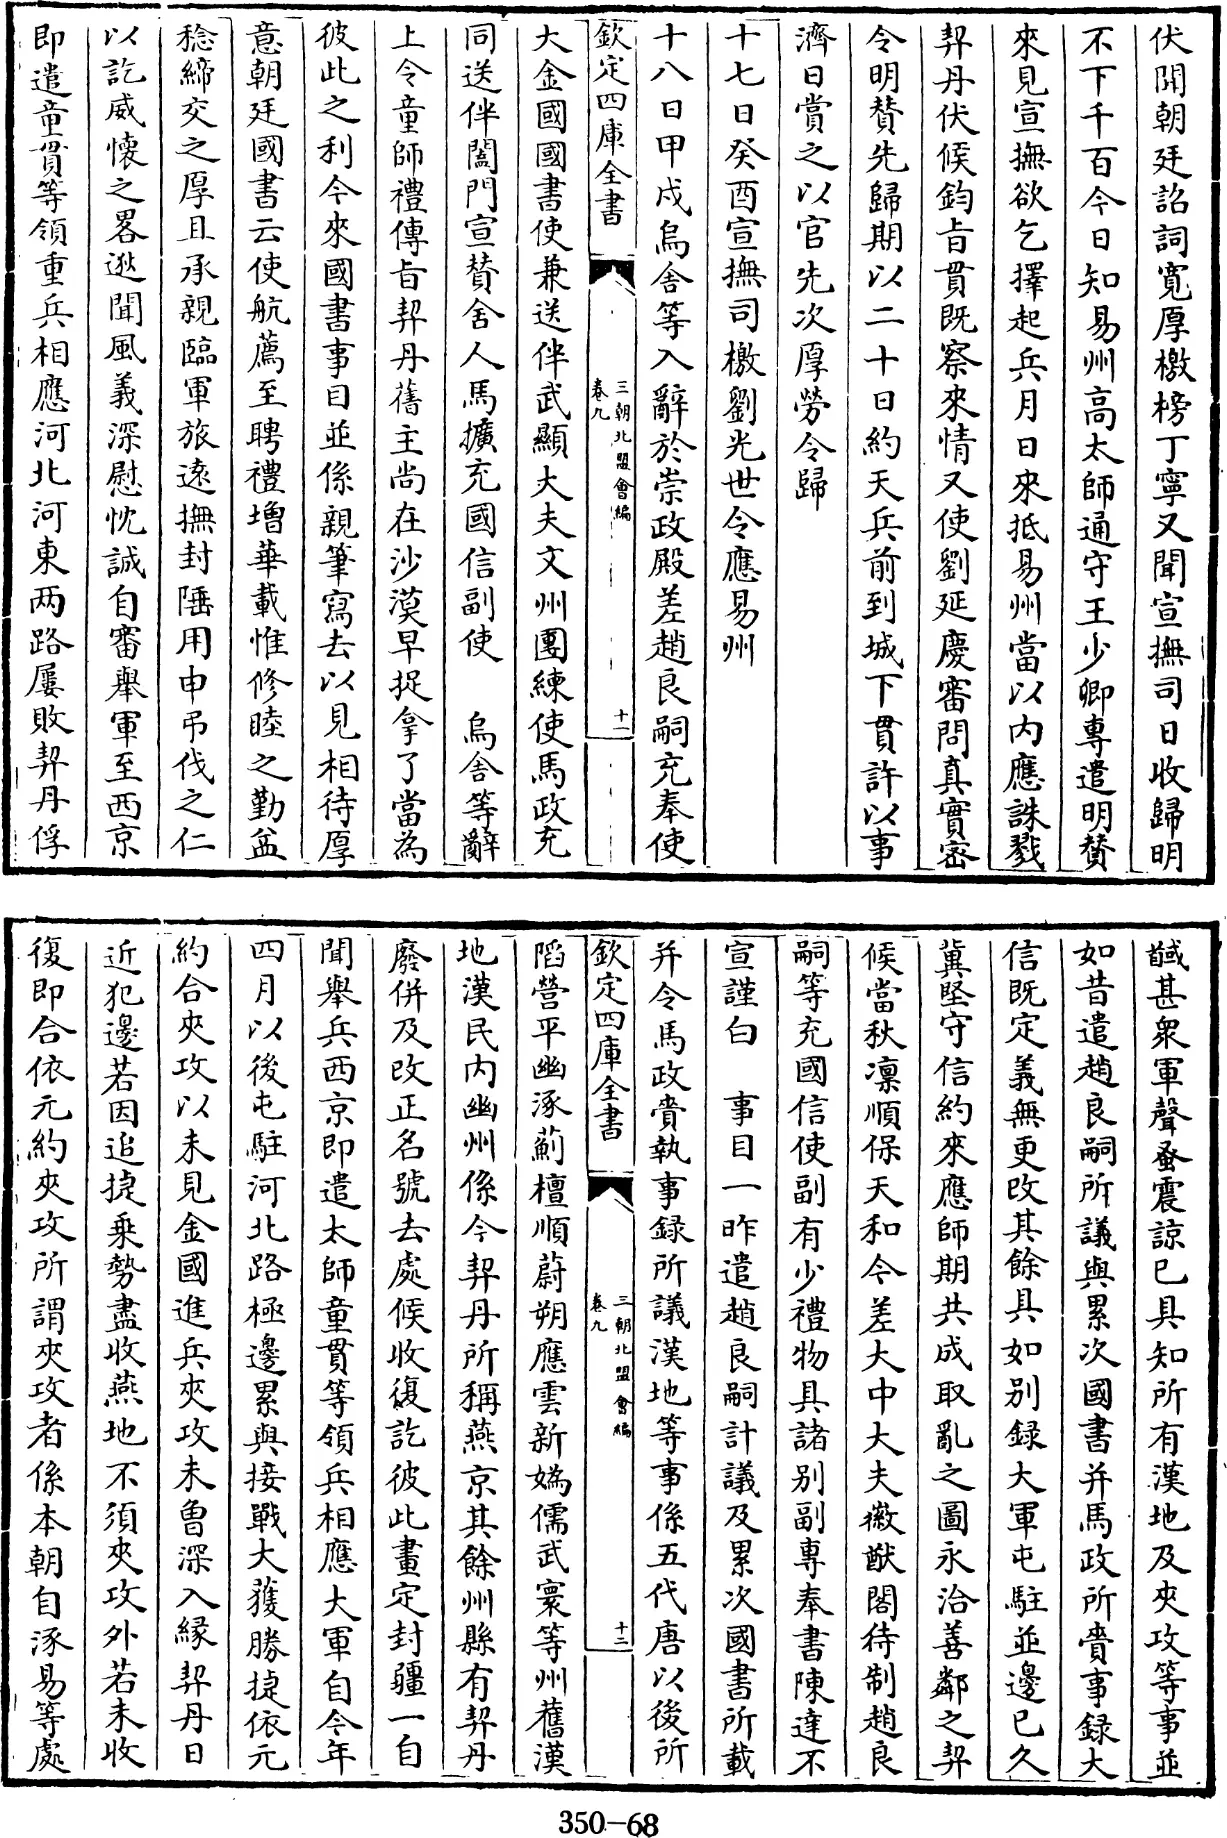 伏聞朝廷詔詞寛厚檄榜丁寧又聞宣撫司日收歸明
不下千百今日知易州高太師通守王少卿專遣明賛
來見宣撫欲乞擇起兵月日來抵易州當以内應誅戮
契丹伏候鈞旨貫既察來情又使劉延慶審問真實密
令明賛先歸期以二十日約天兵前到城下貫許以事
濟日賞之以官先次厚勞令歸
十七日癸酉宣撫司檄劉光世令應易州
十八日甲戍烏舍等入辭於崇政殿差趙良嗣充奉使
欽定四庫全書
三朝北盟會編
卷九
十一
大金國國書使兼送伴武顯大夫文州團練使馬政充
同送伴閤門宣賛舍人馬擴充國信副使 烏舍等辭
上令童師禮傳旨契丹舊主尚在沙漠早捉拿了當為
彼此之利今來國書事目並係親筆寫去以見相待厚
意朝廷國書云使航薦至聘禮增華載惟修睦之勤益
稔締交之厚且承親臨軍旅逺撫封陲用申弔伐之仁
以訖威懷之畧逖聞風義深慰忱誠自審舉軍至西京
即遣童貫等領重兵相應河北河東两路屢敗契丹俘
馘甚衆軍聲蚤震諒已具知所有漢地及夾攻等事並
如昔遣趙良嗣所議與累次國書并馬政所賫事録大
信既定義無更改其餘具如别録大軍屯駐並邊已久
冀堅守信約來應師期共成取亂之圖永洽善鄰之契
候當秋凛順保天和今差大中大夫徽猷閣待制趙良
嗣等充國信使副有少禮物具諸别副專奉書陳達不
宣謹白 事目一昨遣趙良嗣計議及累次國書所載
并令馬政賫執事録所議漢地等事係五代唐以後所
欽定四庫全書
三朝北盟會編
卷九
十二
陷營平幽涿薊檀順蔚朔應雲新媯儒武寰等州舊漢
地漢民内幽州係今契丹所稱燕京其餘州縣有契丹
廢併及改正名號去處候收復訖彼此畫定封疆一自
聞舉兵西京即遣太師童貫等領兵相應大軍自今年
四月以後屯駐河北路極邊累與接戰大獲勝捷依元
約合夾攻以未見金國進兵夾攻未魯深入緣契丹日
近犯邊若因追捷乘勢盡收燕地不須夾攻外若未收
復即合依元約夾攻所謂夾攻者係本朝自涿易等處
350-68